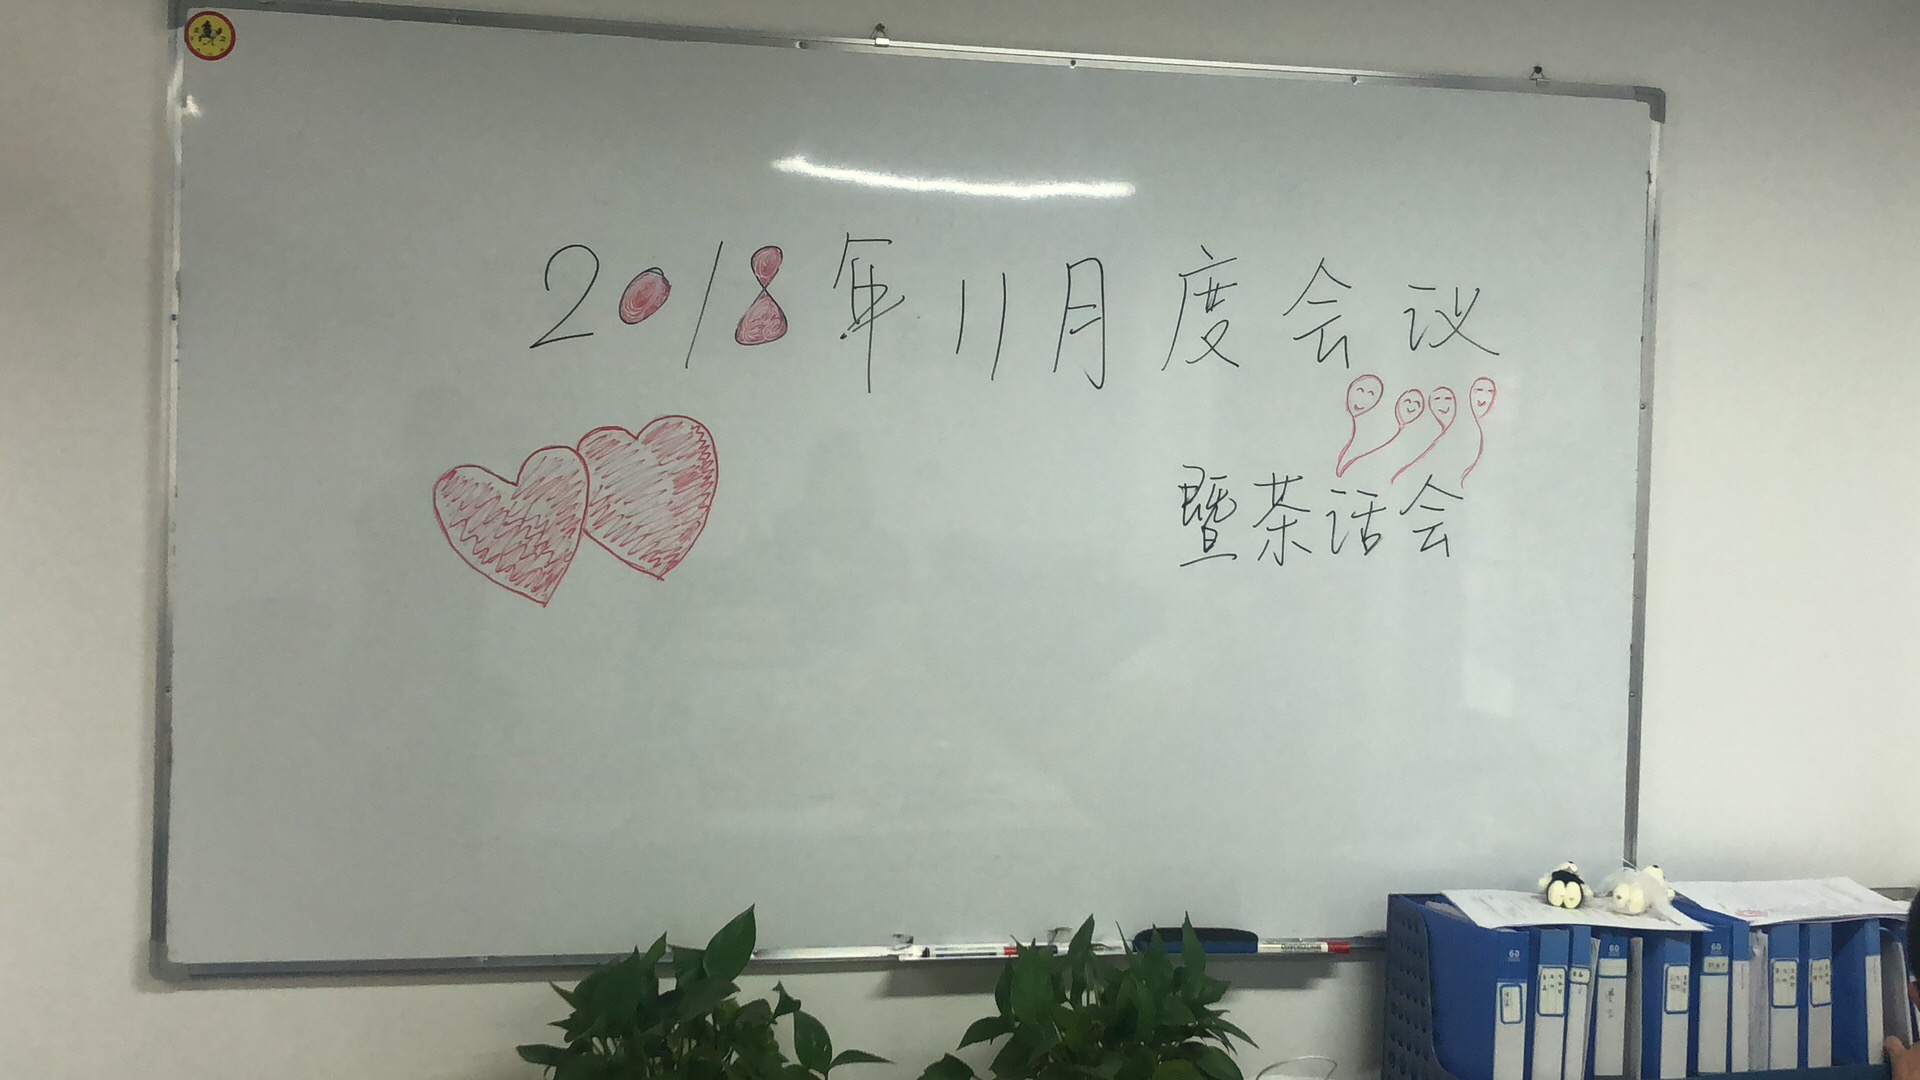 2018年11月度会议
暨茶话会
60
60
60